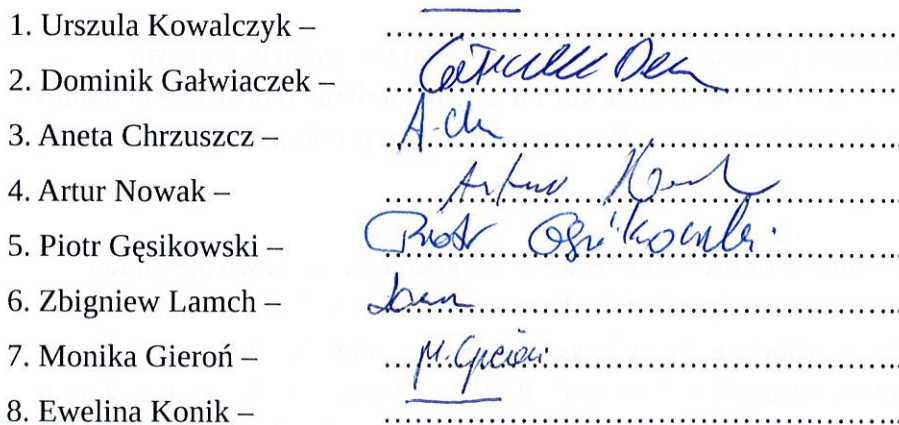 1. Urszula Kowalczyk – ................................................
2. Dominik Gałwiaczek – ................................................
3. Aneta Chrzuszcz – A.Ch ................................................
4. Artur Nowak – Artur Nowak ................................................
5. Piotr Gęsikowski – Piotr Gęsikowski ................................................
6. Zbigniew Lamch – ................................................
7. Monika Gieroń – M. Gieroń ................................................
8. Ewelina Konik – ................................................